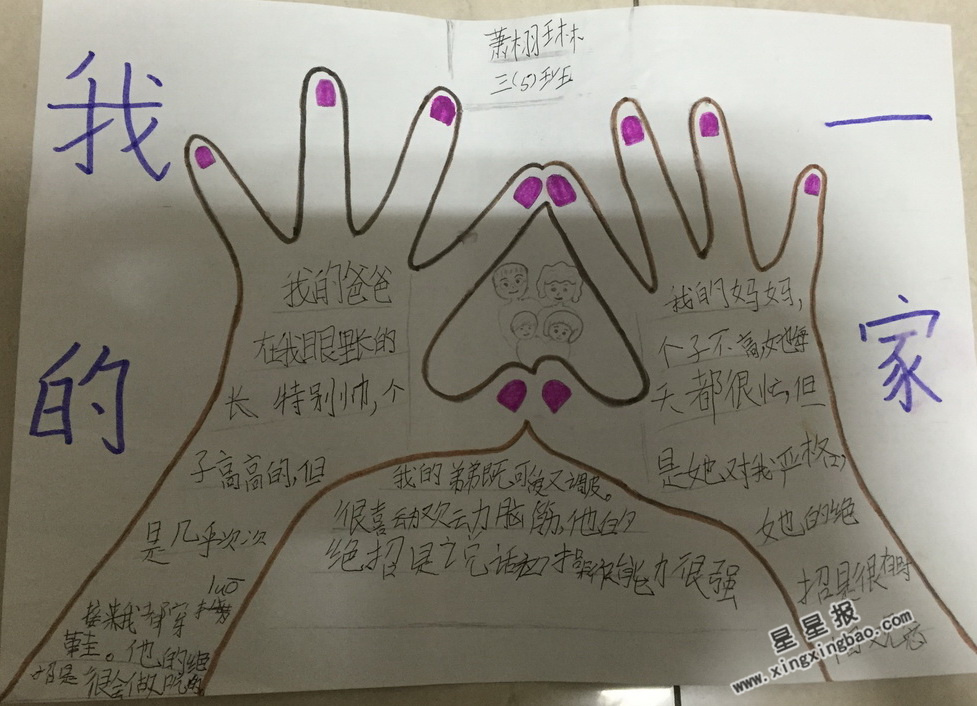 萧栩珄林
三(5)班
我的一家
我的爸爸
在我眼里长的
长、特别帅,个
子高高的,但
是几乎次次
luō
接来我都穿拖
鞋。他的绝
招是很会做
我的妈妈,
个子不高,她每
天都很忙,但
是她对我严格,
她的绝
招是很有时
我的弟弟既可爱又调皮。
很喜欢动脑筋,他的
绝招是说话和操作能力很强
星星报
www.xingxingbao.com